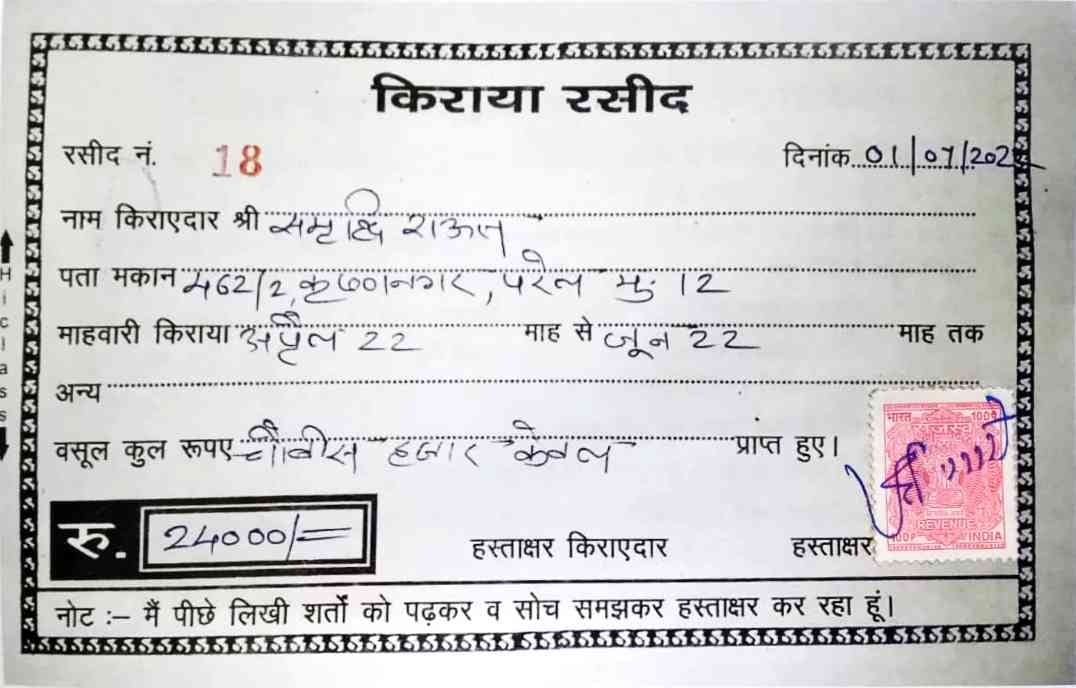 किराया रसीद
रसीद नं. 18 दिनांक 01/07/202
नाम किराएदार श्री समृद्धि राऊत
पता मकान 462/2, कृष्णानगर, परेल मुं. 12
माहवारी किराया अप्रैल 22 माह से जून 22 माह तक
अन्य
वसूल कुल रूपए चौबीस हजार केवल प्राप्त हुए।
भारत 100P
राजस्व
रु. 24000/=
हस्ताक्षर किराएदार हस्ताक्षर
REVENUE
100P INDIA
नोट :– मैं पीछे लिखी शर्तों को पढ़कर व सोच समझकर हस्ताक्षर कर रहा हूं।
Hiclass